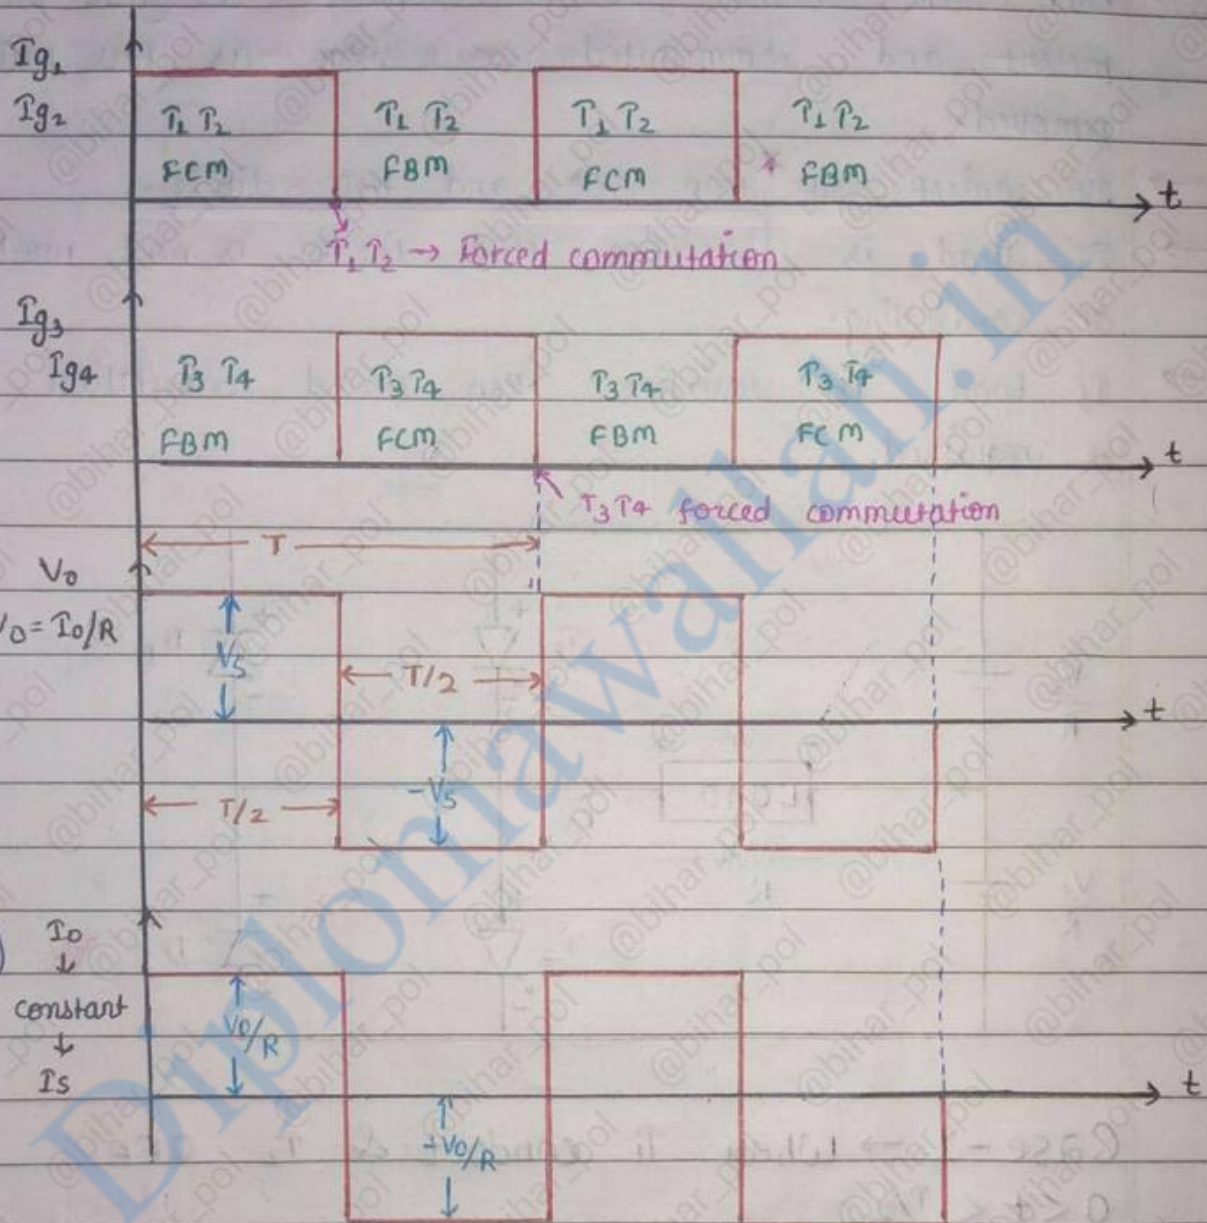 Ig1
Ig2
T1 T2
FCM
T1 T2
FBM
T1 T2
FCM
T1 T2
FBM
t
T1 T2 → Forced commutation
Ig3
Ig4
T3 T4
FBM
T3 T4
FCM
T3 T4
FBM
T3 T4
FCM
t
T3 T4 forced commutation
T
V0
V0 = I0/R
Vs
T/2
t
T/2
-Vs
I0
↓
constant
↓
Is
V0/R
t
-V0/R
Diplomawallah.in
@bihar_pol